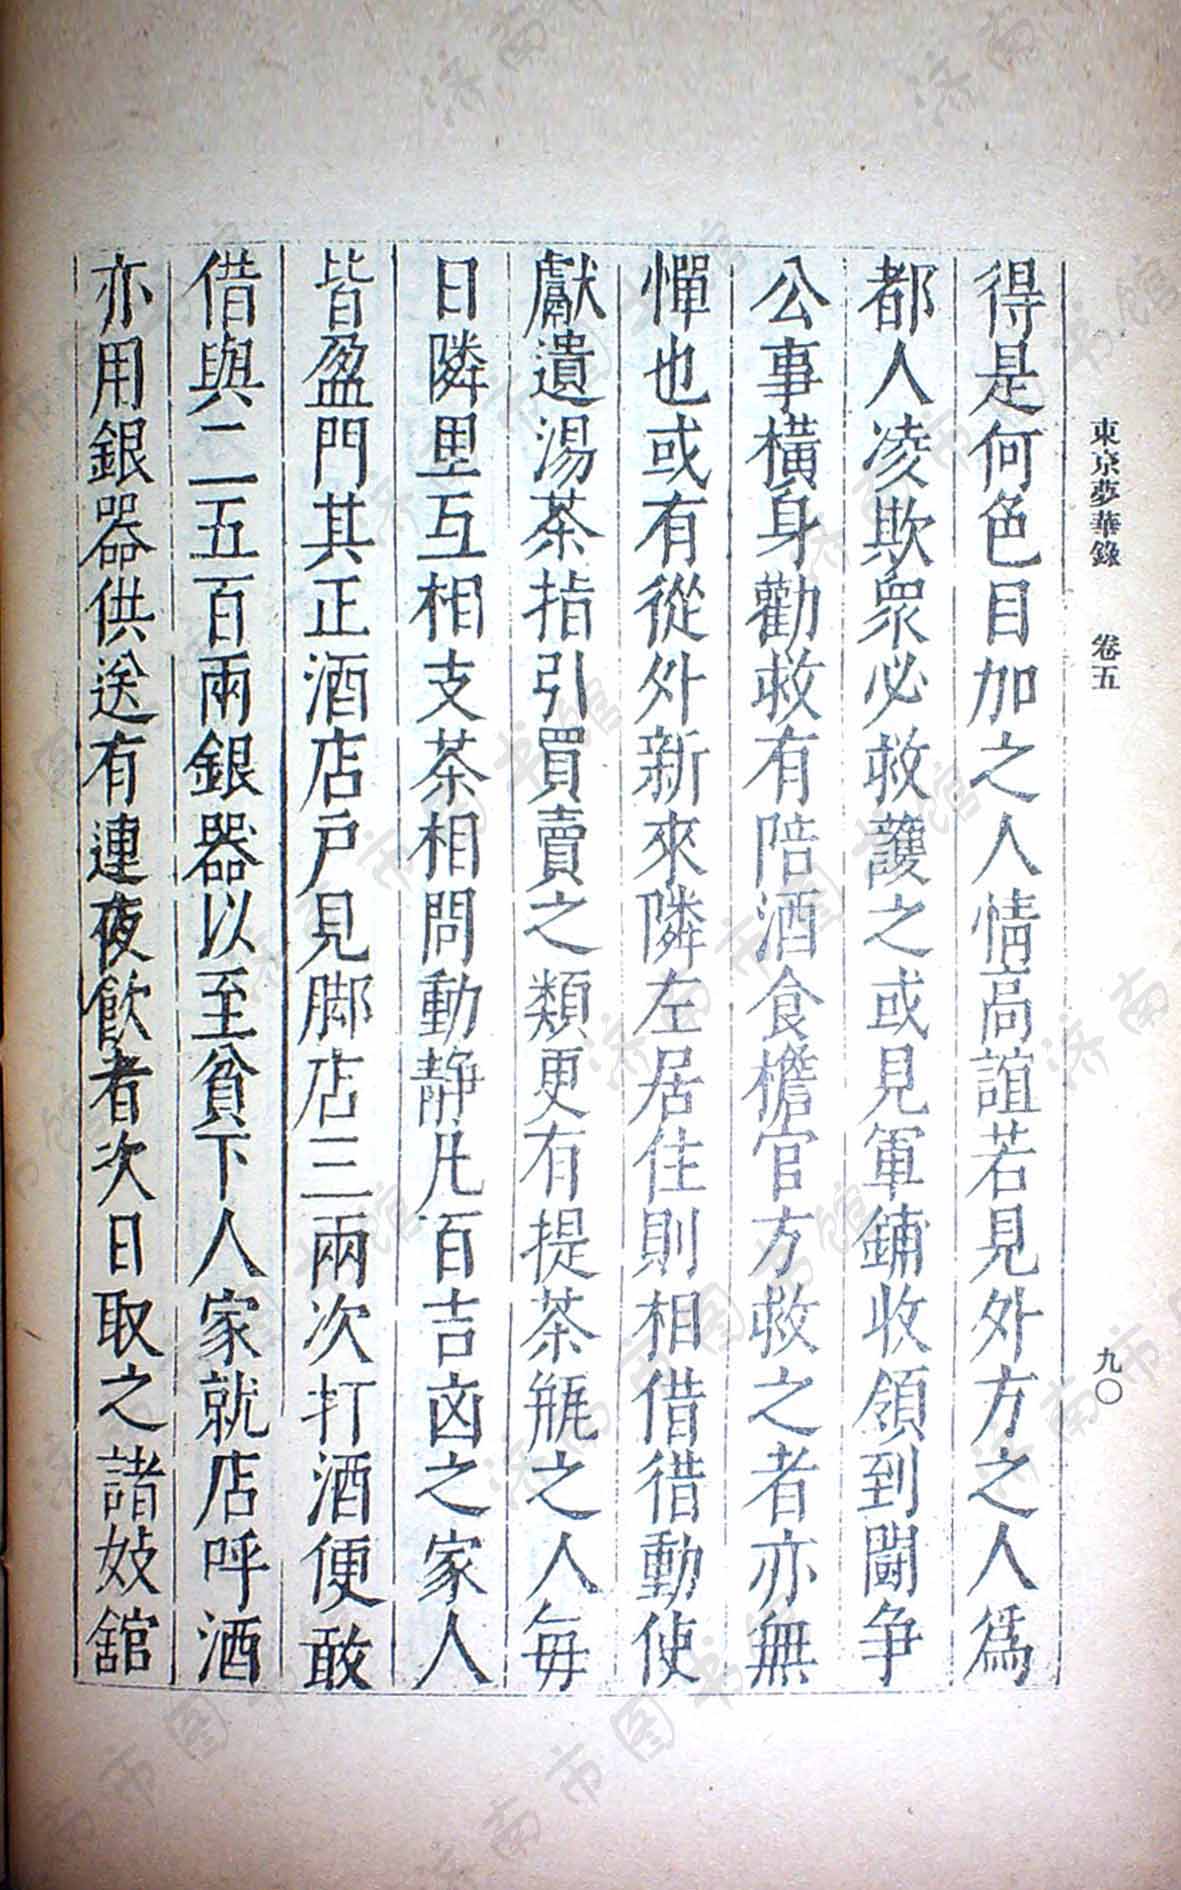 東京夢華錄 卷五 九〇
得是何色目加之人情高誼若見外方之人爲
都人凌欺衆必救護之或見軍鋪收領到鬪争
公事橫身勸救有陪酒食檐官方救之者亦無
憚也或有從外新來隣左居住則相借徣動使
獻遺湯茶指引買賣之類更有提茶瓶之人每
日隣里互相支茶相問動静凡百吉凶之家人
皆盈門其正酒店戶見脚店三兩次打酒便敢
借與二五百兩銀器以至貧下人家就店呼酒
亦用銀器供送有連夜飲者次日取之諸妓舘
济南市图书馆